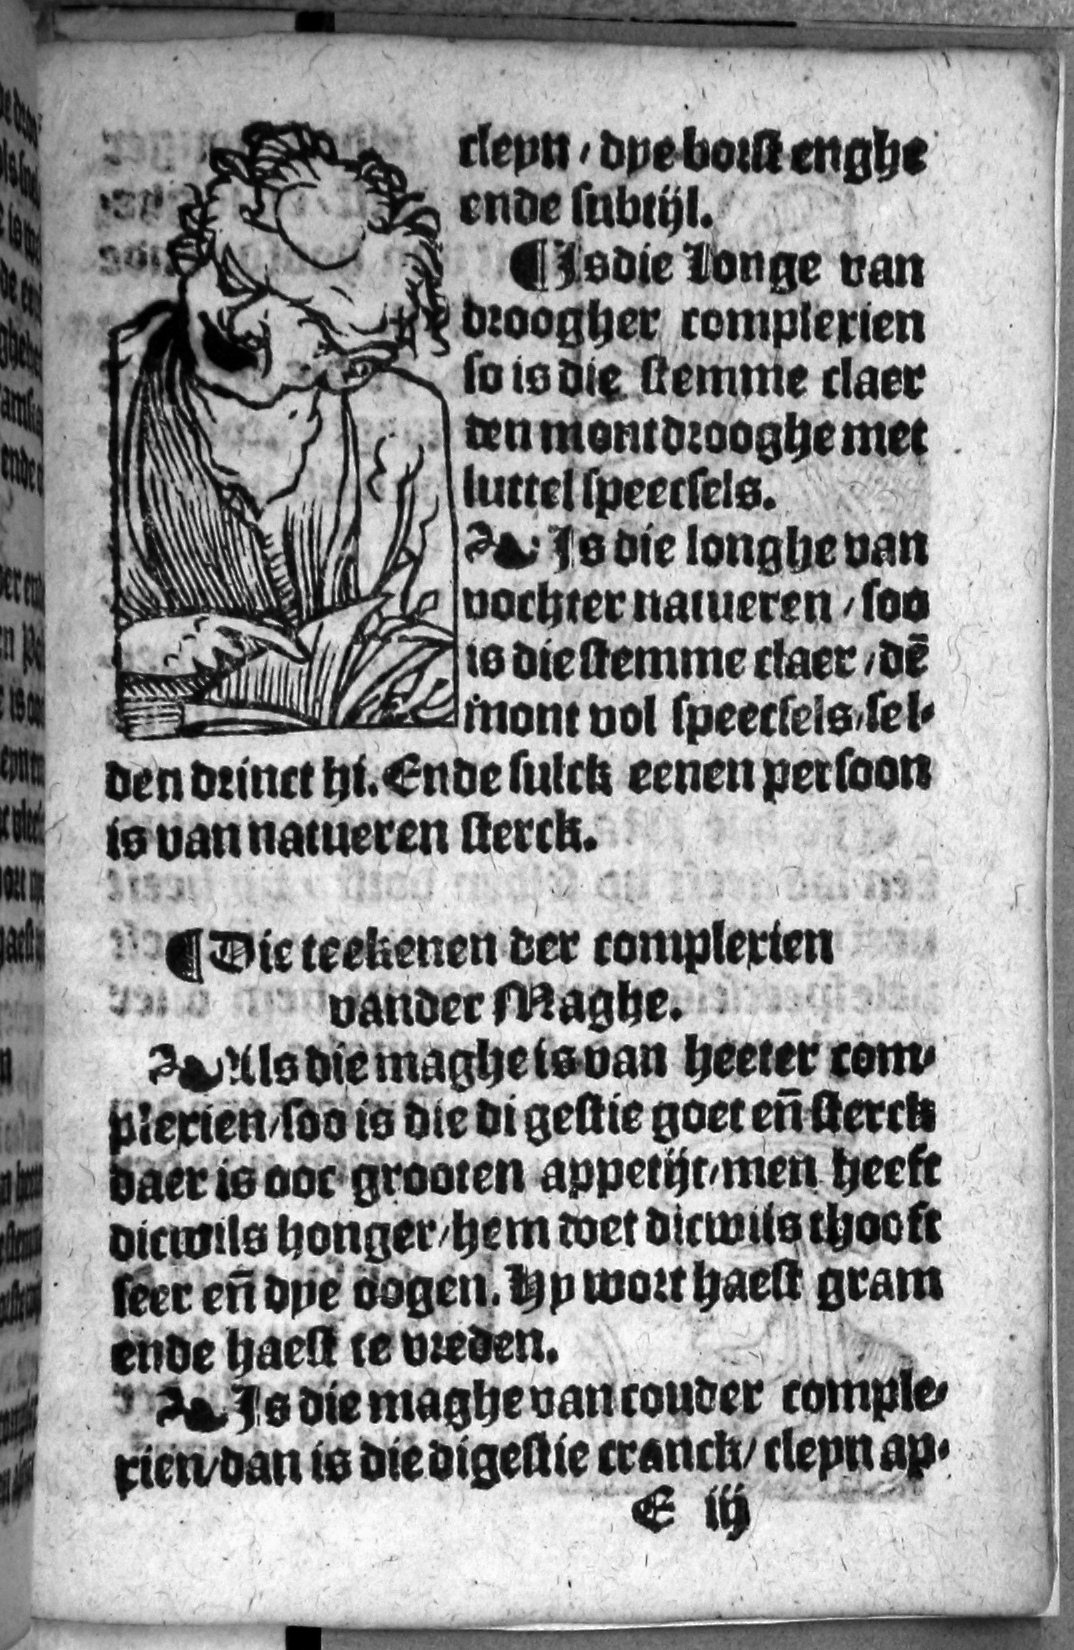 cleyn / dye borst enghe
ende subtijl.
¶ Is die Longe van
droogher complexien
so is die stemme claer
den mont drooghe met
luttel speecsels.
❧ Is die longhe van
vochter natueren / soo
is die stemme claer / dē
mont vol speecsels / sel-
den drinct hi. Ende sulck eenen persoon
is van natueren sterck.
¶ Die teekenen der complexien
vander Maghe.
❧ Als die maghe is van heeter com-
plexien / soo is die digestie goet eñ sterck
daer is ooc grooten appetijt / men heeft
dicwils honger / hem wet dicwils thooft
seer eñ dye oogen. Hy wort haest gram
ende haest te vreden.
❧ Is die maghe van couder comple-
xien / dan is die digestie cranck / cleyn ap-
E iij